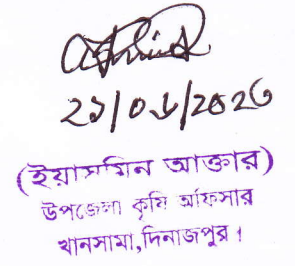 ২১/০৬/২০২৩
(ইয়াসমিন আক্তার)
উপজেলা কৃষি অফিসার
খানসামা,দিনাজপুর।